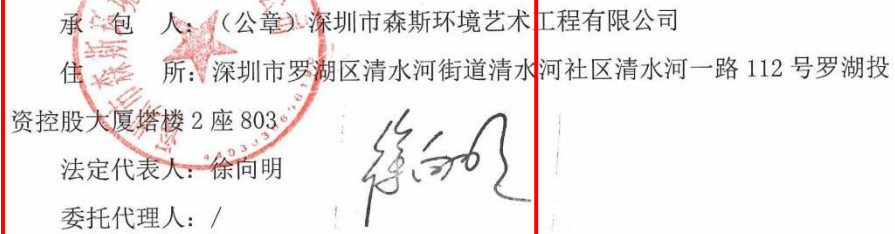 承包人：（公章）深圳市森斯环境艺术工程有限公司
住所：深圳市罗湖区清水河街道清水河社区清水河一路 112 号罗湖投
资控股大厦塔楼 2 座 803
法定代表人：徐向明
徐向明
委托代理人：/